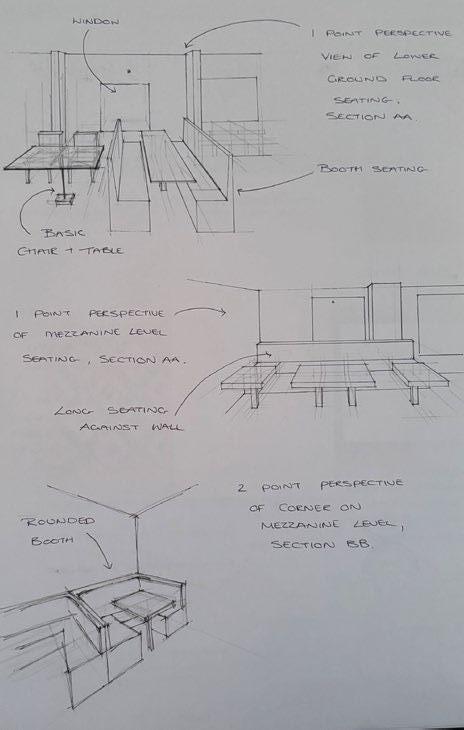 WINDOW
1 POINT PERSPECTIVE
VIEW OF LOWER
GROUND FLOOR
SEATING,
SECTION AA.
BOOTH SEATING
BASIC
CHAIR + TABLE
1 POINT PERSPECTIVE
OF MEZZANINE LEVEL
SEATING, SECTION AA.
LONG SEATING
AGAINST WALL
2 POINT PERSPECTIVE
OF CORNER ON
MEZZANINE LEVEL,
SECTION BB.
ROUNDED
BOOTH